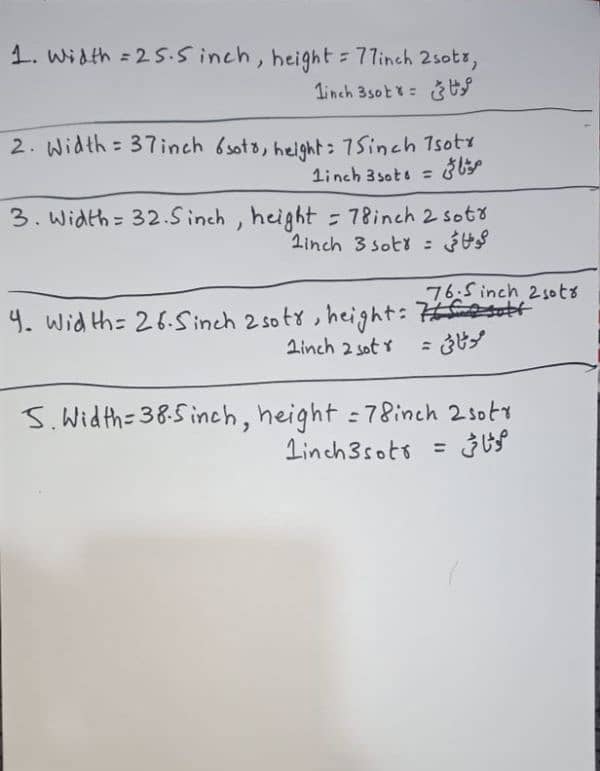 1. Width = 25.5 inch, height = 77inch 2sotr,
1inch 3sotr = موٹائی
2. Width = 37inch 6sotr, height = 75inch 7sotr
1inch 3sotr = موٹائی
3. Width = 32.5inch, height = 78inch 2 sotr
1inch 3 sotr = موٹائی
76.5inch 2sotr
4. Width = 26.5inch 2sotr, height =
1inch 2sotr = موٹائی
5. Width = 38.5inch, height = 78inch 2sotr
1inch3sotr = موٹائی